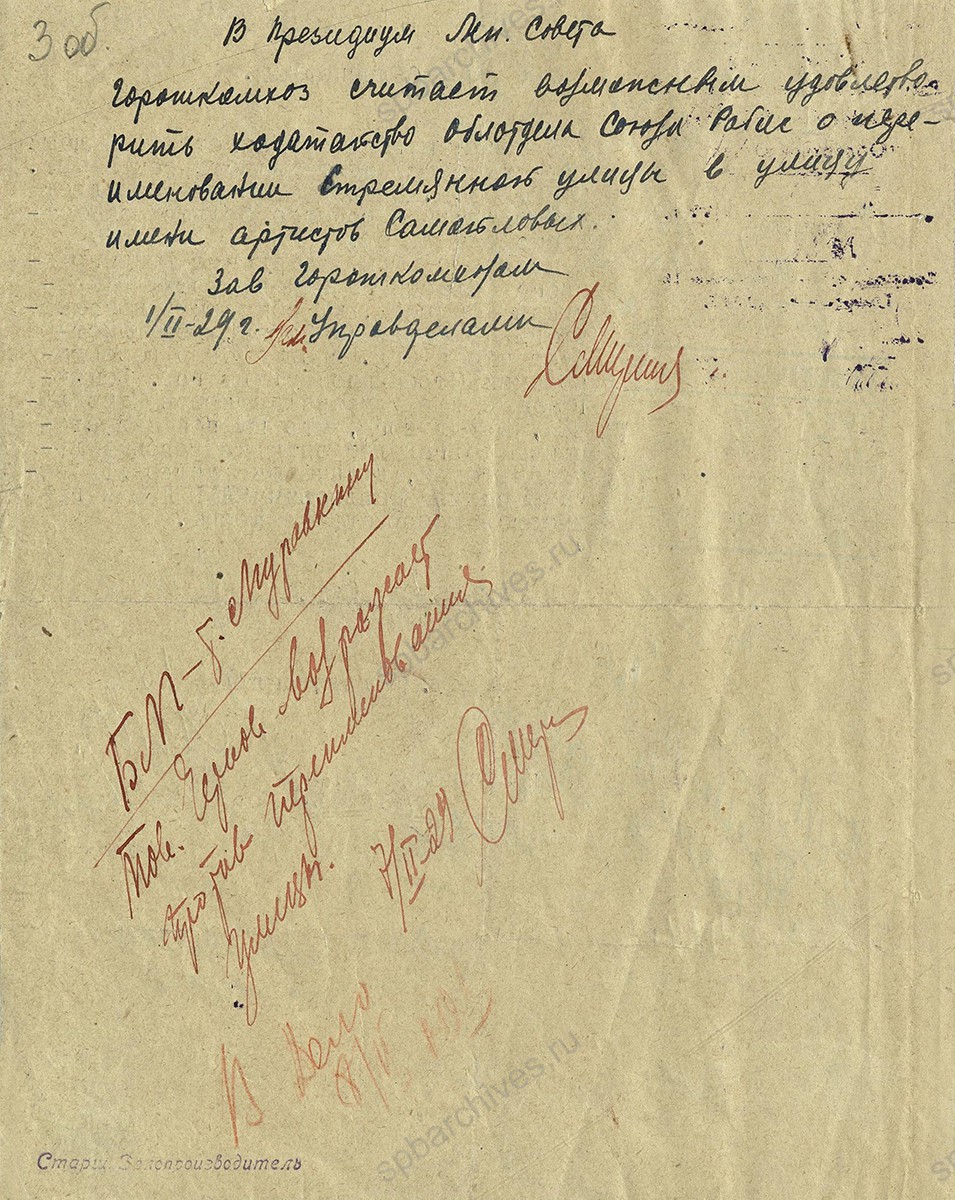 3 об.
В Президиум Лен. Совета
Гороткомхоз считает возможным удовлетво-
рить ходатайство Облотдела Союза Рабис о пере-
именовании Стремянной улицы в улицу
имени артистов Самойловых.
Зав Гороткомхозом
1/II-29 г. Управделами
БМ - т. Муравкину
Тов. возражает
против переименования
улицы. 7/II-29
В дело
Старш. Делопроизводитель
spbarchives.ru